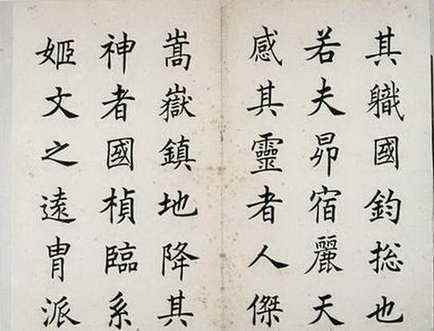 其職國鈞捴也
若夫昴宿麗天
感其靈者人傑
嵩嶽鎮地降其
神者國楨臨系
姬文之遠胄派